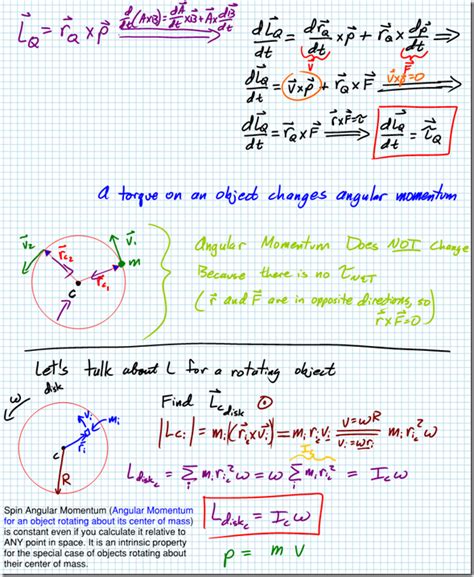 L⃗_Q = r⃗_Q × p⃗ ⟹ d/dt(A⃗×B⃗) = dA⃗/dt × B⃗ + A⃗ × dB⃗/dt
dL⃗_Q/dt = dr⃗_Q/dt × p⃗ + r⃗_Q × dp⃗/dt ⟹
v⃗ F⃗
dL⃗_Q/dt = v⃗×p⃗ + r⃗_Q × F⃗ ⟹ v⃗×p⃗=0
dL⃗_Q/dt = r⃗_Q × F⃗ ⟹ r⃗×F⃗=τ⃗ dL⃗_Q/dt = τ⃗_Q
A torque on an object changes angular momentum
v⃗₂ r⃗_c₂ v⃗₁ m r⃗_c₁ c
Angular Momentum Does NOT Change
Because there is no τ⃗_NET
(r⃗ and F⃗ are in opposite directions, so
r⃗×F⃗=0
Let's talk about L for a rotating object
disk
ω v⃗ᵢ mᵢ r⃗ᵢ c R
Find L⃗_c disk
|L_cᵢ| = mᵢ|(r⃗ᵢ×v⃗ᵢ)| = mᵢ rᵢ vᵢ v=ωR vᵢ=ωrᵢ mᵢ rᵢ² ω
I_c
L_disk_c = Σᵢ mᵢ rᵢ² ω = ω Σᵢ mᵢ rᵢ² = I_c ω
L_disk_c = I_c ω
p = m v
Spin Angular Momentum (Angular Momentum
for an object rotating about its center of mass)
is constant even if you calculate it relative to
ANY point in space. It is an intrinsic property
for the special case of objects rotating about
their center of mass.